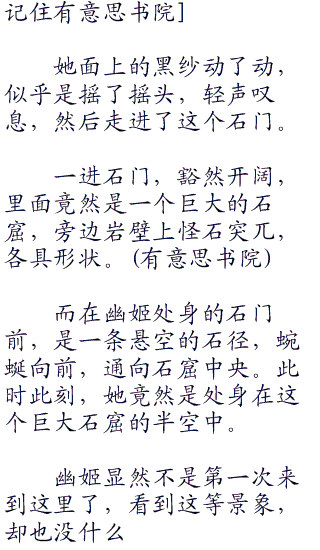 记住有意思书院]
她面上的黑纱动了动，
似乎是摇了摇头，轻声叹
息，然后走进了这个石门。
一进石门，豁然开阔，
里面竟然是一个巨大的石
窟，旁边岩壁上怪石突兀，
各具形状。(有意思书院)
而在幽姬处身的石门
前，是一条悬空的石径，蜿
蜒向前，通向石窟中央。此
时此刻，她竟然是处身在这
个巨大石窟的半空中。
幽姬显然不是第一次来
到这里了，看到这等景象，
却也没什么